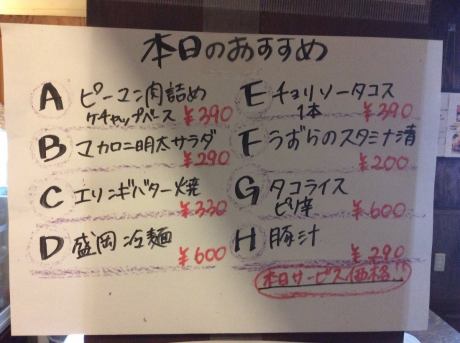 本日のおすすめ
A ピーマン肉詰め
ケチャップベース ¥390
B マカロニ明太サラダ
¥290
C エリンギバター焼
¥330
D 盛岡冷麺
¥600
E チョリソータコス
1本 ¥390
F うずらのスタミナ漬
¥200
G タコライス
ピリ辛 ¥600
H 豚汁
¥290
本日サービス価格!!